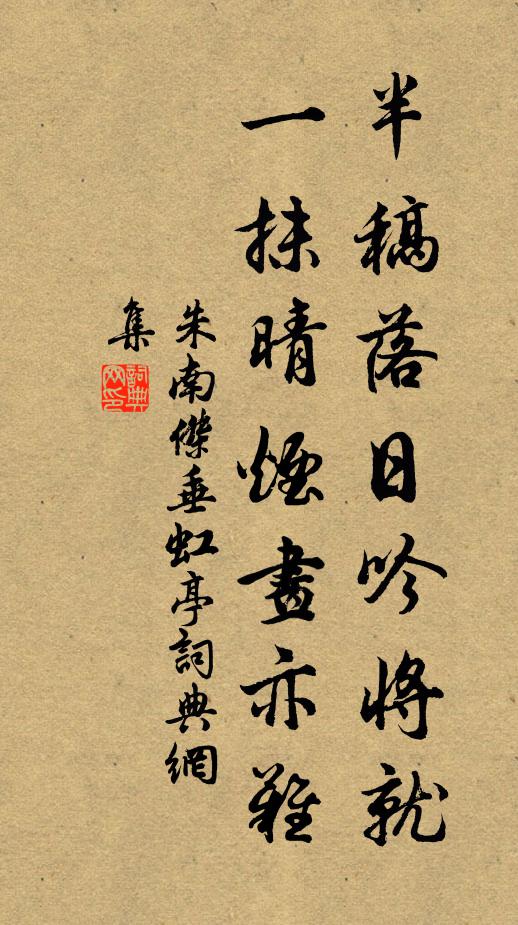 半稿落日吟將就
一抹晴煙畫亦難
朱南傑垂虹亭詞典網
集
詞典網印